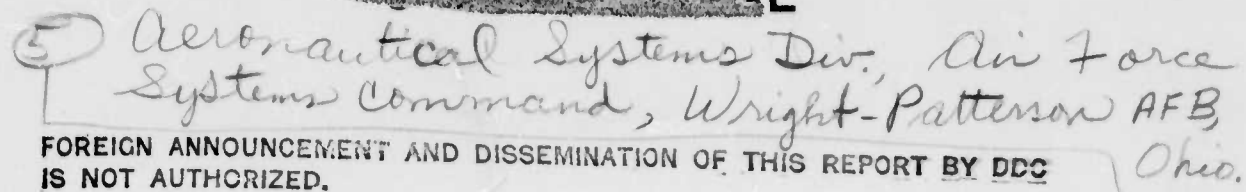 5 Aeronautical Systems Div., Air Force
Systems Command, Wright-Patterson AFB,
Ohio.
FOREIGN ANNOUNCEMENT AND DISSEMINATION OF THIS REPORT BY DDC
IS NOT AUTHORIZED.